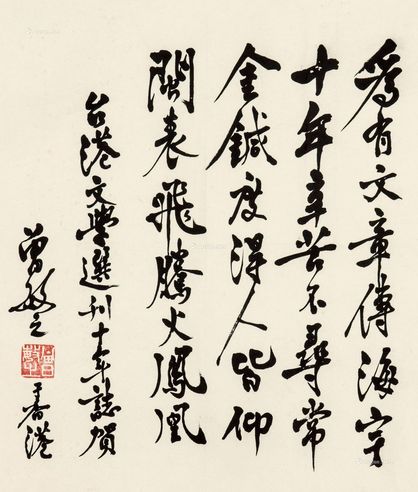 为有文章傳海宇
十年辛苦不尋常
金鍼度得人皆仰
閩表飛騰火鳳凰
台港文學選刊十年誌賀
曾敏之
于香港